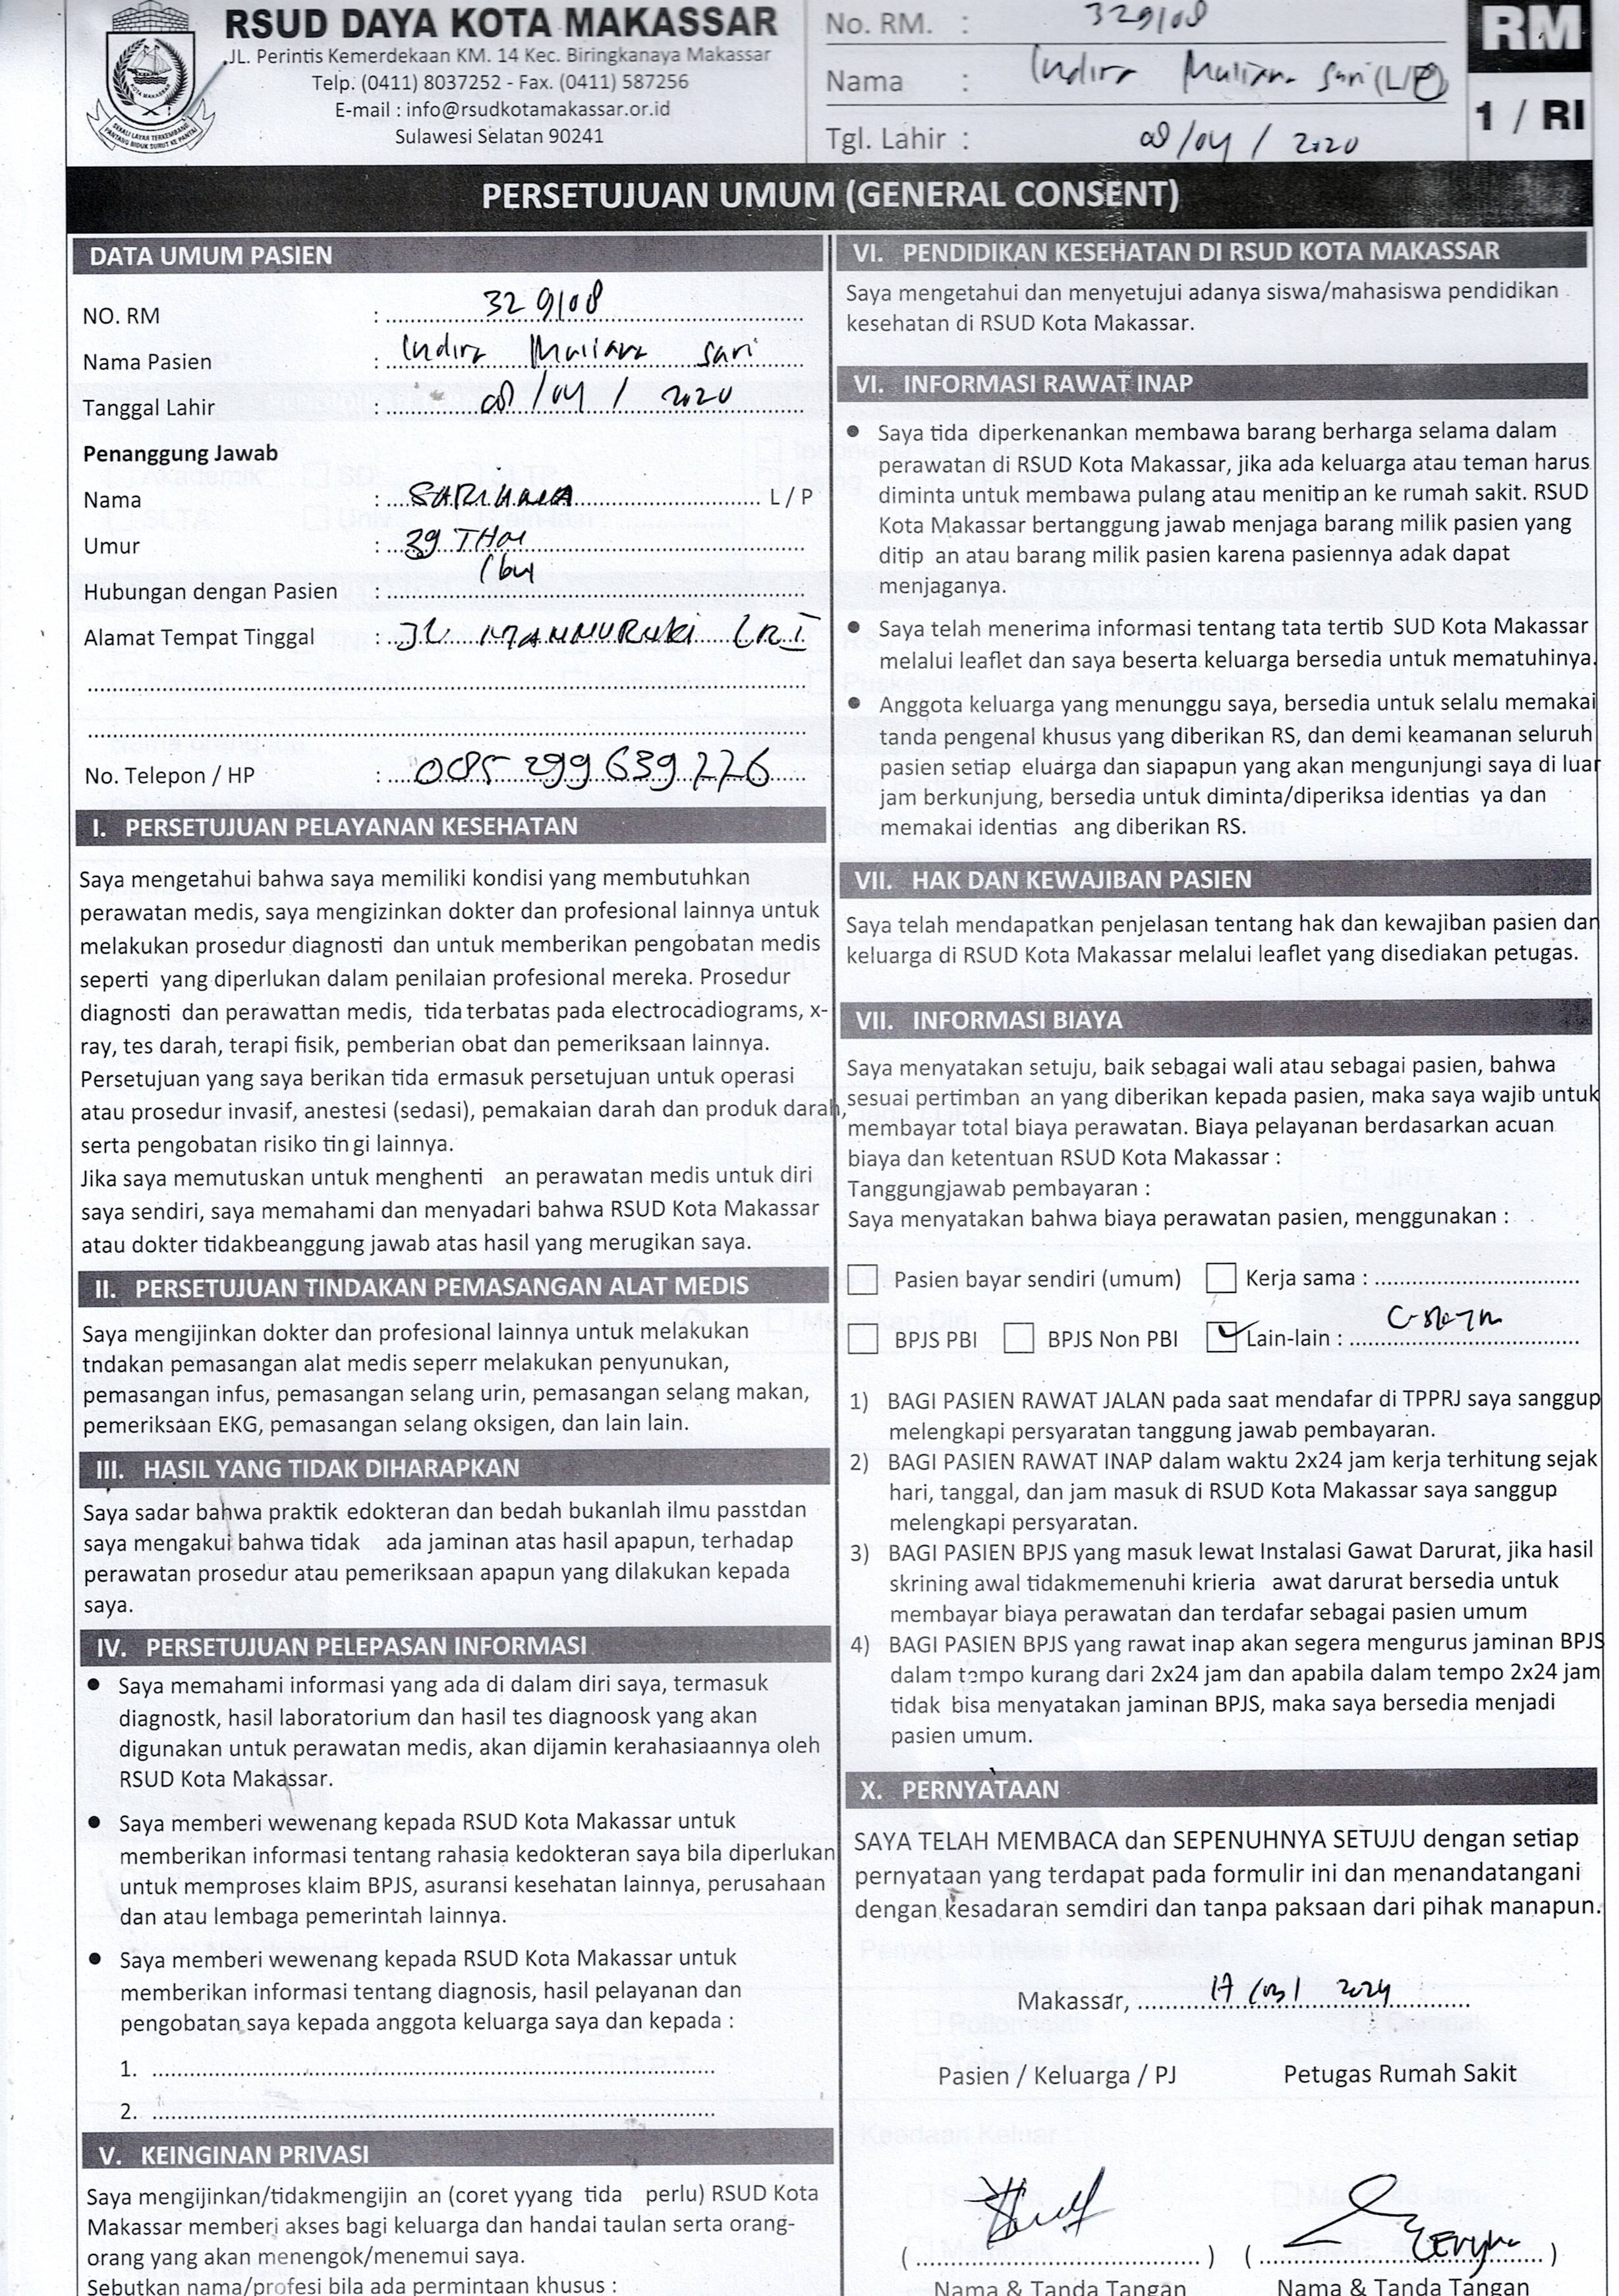 RSUD DAYA KOTA MAKASSAR
JL. Perintis Kemerdekaan KM. 14 Kec. Biringkanaya Makassar
Telp. (0411) 8037252 - Fax. (0411) 587256
E-mail : info@rsudkotamakassar.or.id
Sulawesi Selatan 90241
No. RM. : 329108
Nama : Indira Muliana Sari (L/P)
Tgl. Lahir : 08/04/2020
RM
1 / RI
PERSETUJUAN UMUM (GENERAL CONSENT)
DATA UMUM PASIEN
NO. RM : 329108
Nama Pasien : Indira Muliana Sari
Tanggal Lahir : 08/04/2020
Penanggung Jawab
Nama : L / P
Umur : 39 THn
Hubungan dengan Pasien : Ibu
Alamat Tempat Tinggal : JL. MANNURUKI
No. Telepon / HP : 085 299 639 226
I. PERSETUJUAN PELAYANAN KESEHATAN
Saya mengetahui bahwa saya memiliki kondisi yang membutuhkan
perawatan medis, saya mengizinkan dokter dan profesional lainnya untuk
melakukan prosedur diagnosti dan untuk memberikan pengobatan medis
seperti yang diperlukan dalam penilaian profesional mereka. Prosedur
diagnosti dan perawattan medis, tida terbatas pada electrocadiograms, x-
ray, tes darah, terapi fisik, pemberian obat dan pemeriksaan lainnya.
Persetujuan yang saya berikan tida ermasuk persetujuan untuk operasi
atau prosedur invasif, anestesi (sedasi), pemakaian darah dan produk darah,
serta pengobatan risiko tin gi lainnya.
Jika saya memutuskan untuk menghenti an perawatan medis untuk diri
saya sendiri, saya memahami dan menyadari bahwa RSUD Kota Makassar
atau dokter tidakbeanggung jawab atas hasil yang merugikan saya.
II. PERSETUJUAN TINDAKAN PEMASANGAN ALAT MEDIS
Saya mengijinkan dokter dan profesional lainnya untuk melakukan
tndakan pemasangan alat medis seperr melakukan penyunukan,
pemasangan infus, pemasangan selang urin, pemasangan selang makan,
pemeriksaan EKG, pemasangan selang oksigen, dan lain lain.
III. HASIL YANG TIDAK DIHARAPKAN
Saya sadar bahwa praktik edokteran dan bedah bukanlah ilmu passtdan
saya mengakui bahwa tidak ada jaminan atas hasil apapun, terhadap
perawatan prosedur atau pemeriksaan apapun yang dilakukan kepada
saya.
IV. PERSETUJUAN PELEPASAN INFORMASI
• Saya memahami informasi yang ada di dalam diri saya, termasuk
diagnostk, hasil laboratorium dan hasil tes diagnoosk yang akan
digunakan untuk perawatan medis, akan dijamin kerahasiaannya oleh
RSUD Kota Makassar.
• Saya memberi wewenang kepada RSUD Kota Makassar untuk
memberikan informasi tentang rahasia kedokteran saya bila diperlukan
untuk memproses klaim BPJS, asuransi kesehatan lainnya, perusahaan
dan atau lembaga pemerintah lainnya.
• Saya memberi wewenang kepada RSUD Kota Makassar untuk
memberikan informasi tentang diagnosis, hasil pelayanan dan
pengobatan saya kepada anggota keluarga saya dan kepada :
1.
2.
V. KEINGINAN PRIVASI
Saya mengijinkan/tidakmengijin an (coret yyang tida perlu) RSUD Kota
Makassar memberi akses bagi keluarga dan handai taulan serta orang-
orang yang akan menengok/menemui saya.
Sebutkan nama/profesi bila ada permintaan khusus :
VI. PENDIDIKAN KESEHATAN DI RSUD KOTA MAKASSAR
Saya mengetahui dan menyetujui adanya siswa/mahasiswa pendidikan
kesehatan di RSUD Kota Makassar.
VI. INFORMASI RAWAT INAP
• Saya tida diperkenankan membawa barang berharga selama dalam
perawatan di RSUD Kota Makassar, jika ada keluarga atau teman harus
diminta untuk membawa pulang atau menitip an ke rumah sakit. RSUD
Kota Makassar bertanggung jawab menjaga barang milik pasien yang
ditip an atau barang milik pasien karena pasiennya adak dapat
menjaganya.
• Saya telah menerima informasi tentang tata tertib SUD Kota Makassar
melalui leaflet dan saya beserta keluarga bersedia untuk mematuhinya.
• Anggota keluarga yang menunggu saya, bersedia untuk selalu memakai
tanda pengenal khusus yang diberikan RS, dan demi keamanan seluruh
pasien setiap eluarga dan siapapun yang akan mengunjungi saya di luar
jam berkunjung, bersedia untuk diminta/diperiksa identias ya dan
memakai identias ang diberikan RS.
VII. HAK DAN KEWAJIBAN PASIEN
Saya telah mendapatkan penjelasan tentang hak dan kewajiban pasien dan
keluarga di RSUD Kota Makassar melalui leaflet yang disediakan petugas.
VII. INFORMASI BIAYA
Saya menyatakan setuju, baik sebagai wali atau sebagai pasien, bahwa
sesuai pertimban an yang diberikan kepada pasien, maka saya wajib untuk
membayar total biaya perawatan. Biaya pelayanan berdasarkan acuan
biaya dan ketentuan RSUD Kota Makassar :
Tanggungjawab pembayaran :
Saya menyatakan bahwa biaya perawatan pasien, menggunakan :
Pasien bayar sendiri (umum) Kerja sama :
BPJS PBI BPJS Non PBI Lain-lain :
1) BAGI PASIEN RAWAT JALAN pada saat mendafar di TPPRJ saya sanggup
melengkapi persyaratan tanggung jawab pembayaran.
2) BAGI PASIEN RAWAT INAP dalam waktu 2x24 jam kerja terhitung sejak
hari, tanggal, dan jam masuk di RSUD Kota Makassar saya sanggup
melengkapi persyaratan.
3) BAGI PASIEN BPJS yang masuk lewat Instalasi Gawat Darurat, jika hasil
skrining awal tidakmemenuhi krieria awat darurat bersedia untuk
membayar biaya perawatan dan terdafar sebagai pasien umum
4) BAGI PASIEN BPJS yang rawat inap akan segera mengurus jaminan BPJS
dalam tempo kurang dari 2x24 jam dan apabila dalam tempo 2x24 jam
tidak bisa menyatakan jaminan BPJS, maka saya bersedia menjadi
pasien umum.
X. PERNYATAAN
SAYA TELAH MEMBACA dan SEPENUHNYA SETUJU dengan setiap
pernyataan yang terdapat pada formulir ini dan menandatangani
dengan kesadaran semdiri dan tanpa paksaan dari pihak manapun.
Makassar, 17/03/2024
Pasien / Keluarga / PJ Petugas Rumah Sakit
( ) ( )
Nama & Tanda Tangan Nama & Tanda Tangan